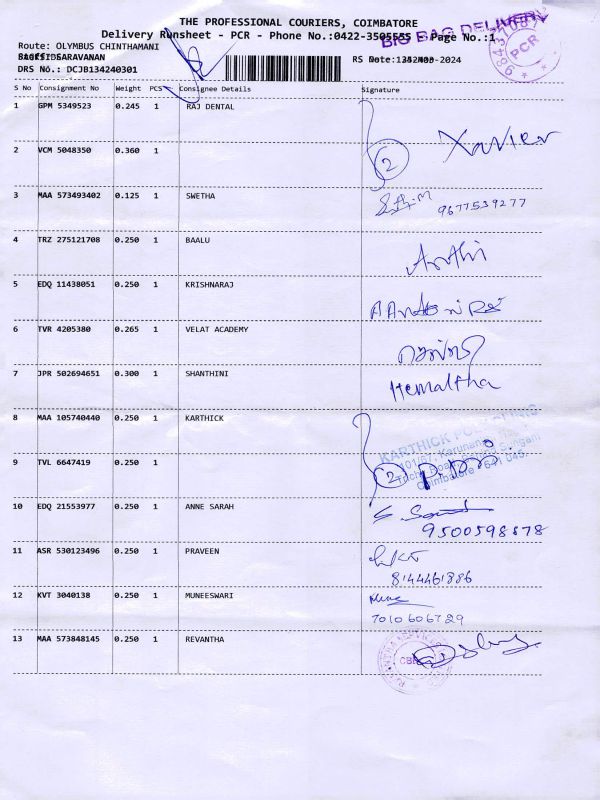 THE PROFESSIONAL COURIERS, COIMBATORE
Delivery Runsheet - PCR - Phone No.:0422-3505555 - Page No.:1
BIG BAG DELIVERY
Route: OLYMBUS CHINTHAMANI
PCR
SARAVANAN
DRS No.: DCJB134240301
S No Consignment No Weight PCS Consignee Details Signature
1 GPM 5349523 0.245 1 RAJ DENTAL
2 Xavier
2 VCM 5048350 0.360 1
3 MAA 573493402 0.125 1 SWETHA 9677539277
4 TRZ 275121708 0.250 1 BAALU Arthi
5 EDQ 11438051 0.250 1 KRISHNARAJ
6 TVR 4205380 0.265 1 VELAT ACADEMY
7 JPR 502694651 0.300 1 SHANTHINI Hemaltha
8 MAA 105740440 0.250 1 KARTHICK
KARTHICK
Coimbatore - 641 045.
9 TVL 6647419 0.250 1 2
10 EDQ 21553977 0.250 1 ANNE SARAH
9500598878
11 ASR 530123496 0.250 1 PRAVEEN
8144461886
12 KVT 3040138 0.250 1 MUNEESWARI
7010606729
13 MAA 573848145 0.250 1 REVANTHA